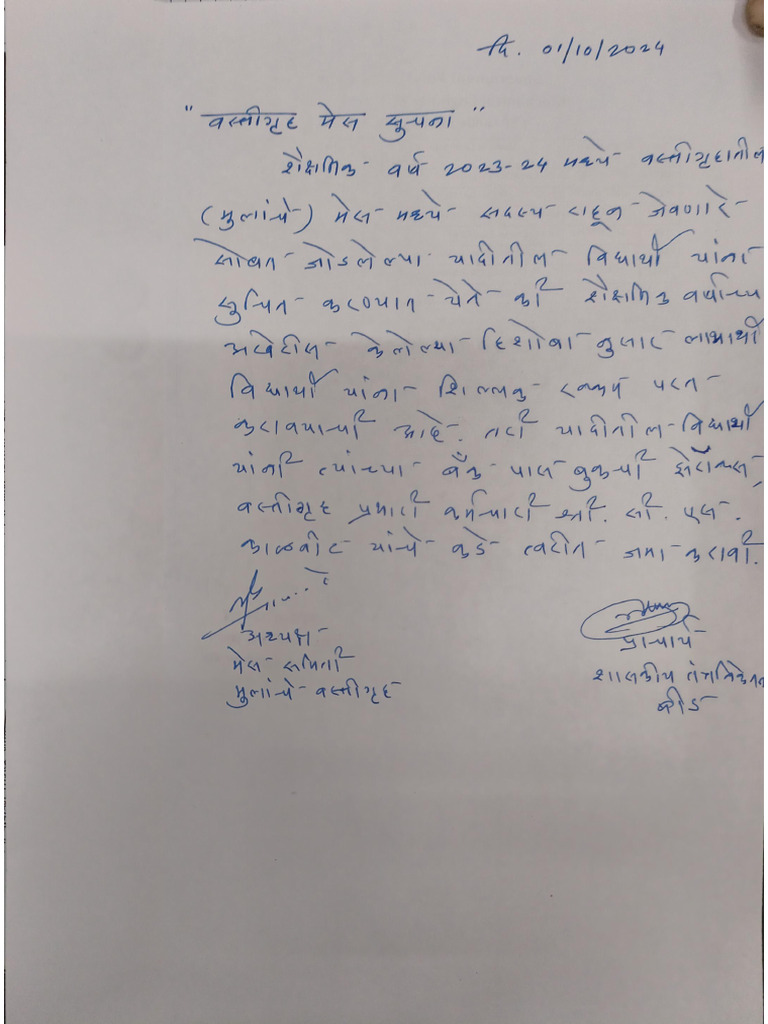 दि. 01/10/2024
" वस्तीगृह मेस सुचना "
शैक्षणिक वर्ष 2023-24 मध्ये वस्तीगृहातील
(मुलांचे) मेस मध्ये सदस्य राहून जेवणारे
सोबत जोडलेल्या यादीतील विद्यार्थी यांना
सुचित करण्यात येते की शैक्षणिक वर्षाच्या
अखेरीस केलेल्या हिशोबा नुसार लाभार्थी
विद्यार्थी यांना शिल्लक रक्कम परत
करावयाची आहे. तरी यादीतील विद्यार्थी
यांनी त्यांच्या बँक पास बुकची झेरॉक्स,
वस्तीगृह प्रभारी कर्मचारी श्री. सी. एस.
काळवीट यांचे कडे त्वरीत जमा करावी.
अध्यक्ष
मेस समिती
मुलांचे वस्तीगृह
प्राचार्य
शासकीय तंत्रनिकेतन
बीड